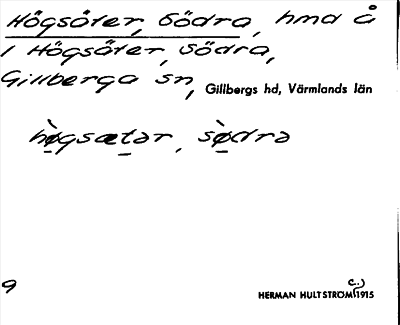 Högsäter, Södra, hmd å
1 Högsäter, Södra,
Gillberga sn, Gillbergs hd, Värmlands län
hø̀gsætər, sø̀drə
9
HERMAN HULTSTRÖM 1915